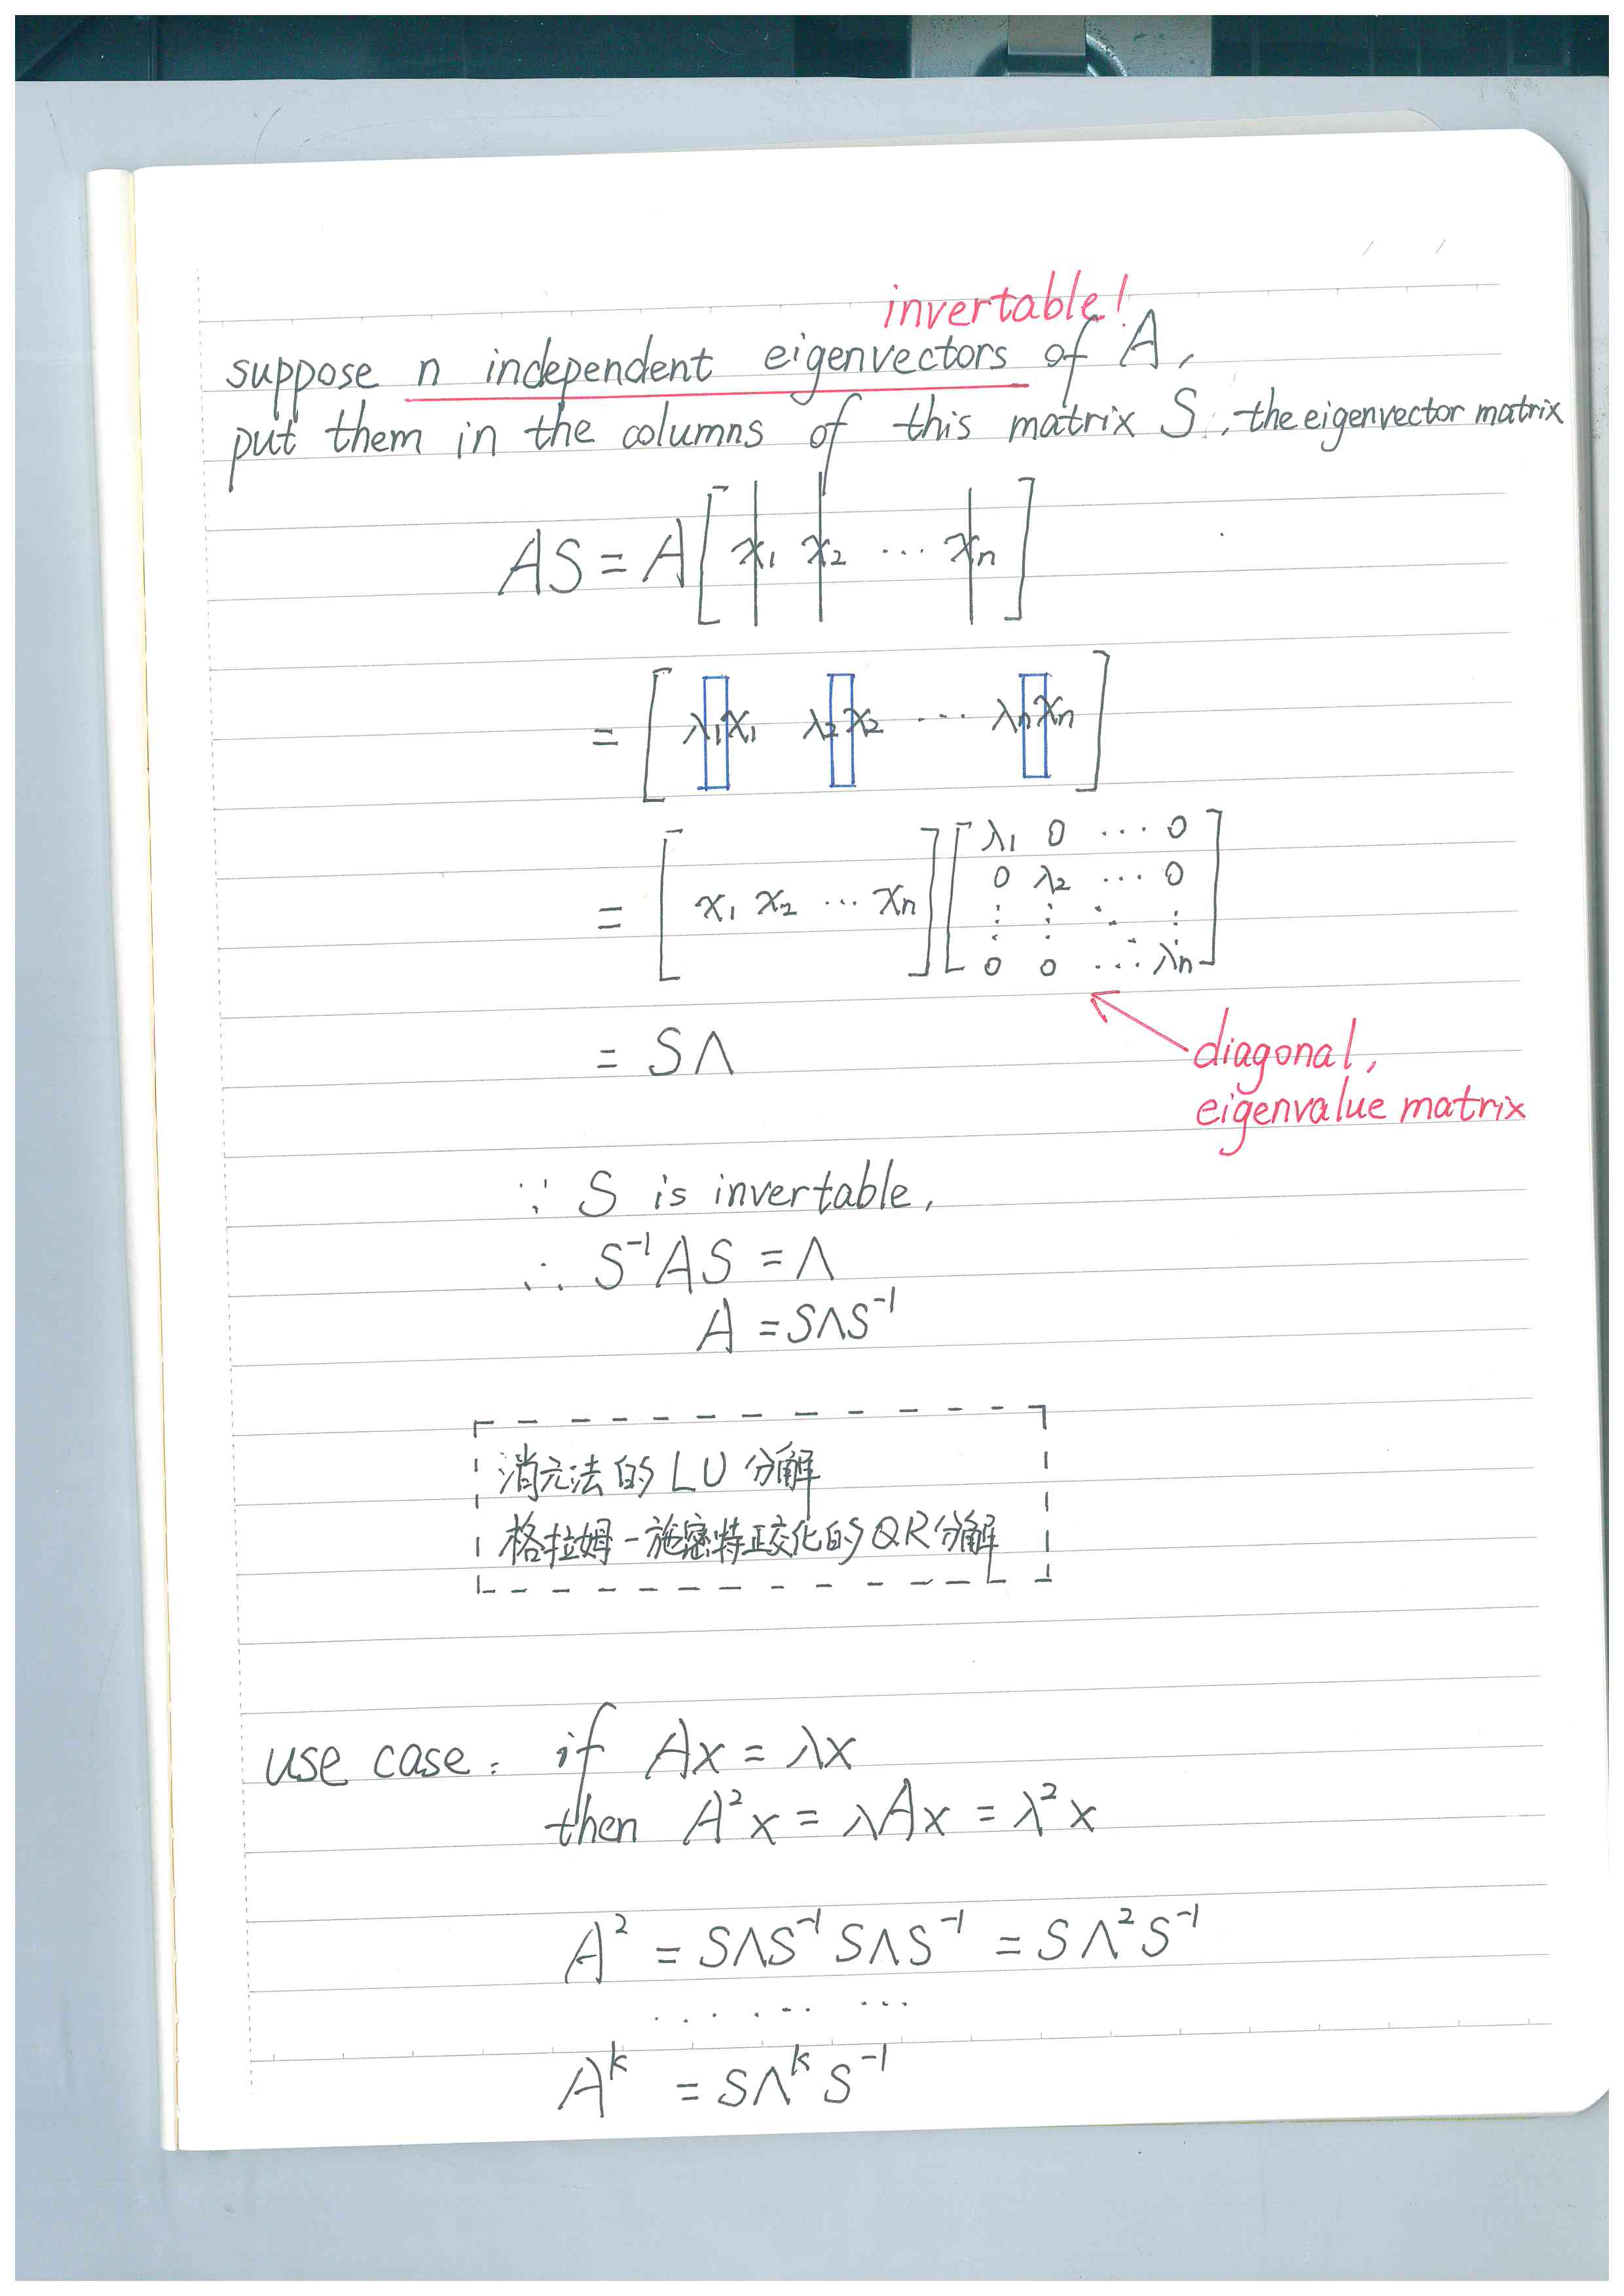 invertable!
suppose n independent eigenvectors of A,
put them in the columns of this matrix S, the eigenvector matrix
AS = A[x₁ x₂ ⋯ xₙ]
= [λ₁x₁ λ₂x₂ ⋯ λₙxₙ]
= [x₁ x₂ ⋯ xₙ][λ₁ 0 ⋯ 0
0 λ₂ ⋯ 0
⋮ ⋮ ⋱ ⋮
0 0 ⋯ λₙ]
= SΛ
diagonal,
eigenvalue matrix
∵ S is invertable,
∴ S⁻¹AS = Λ
A = SΛS⁻¹
消元法的LU分解
格拉姆-施密特正交化的QR分解
use case: if Ax = λx
then A²x = λAx = λ²x
A² = SΛS⁻¹SΛS⁻¹ = SΛ²S⁻¹
... ... ...
Aᵏ = SΛᵏS⁻¹